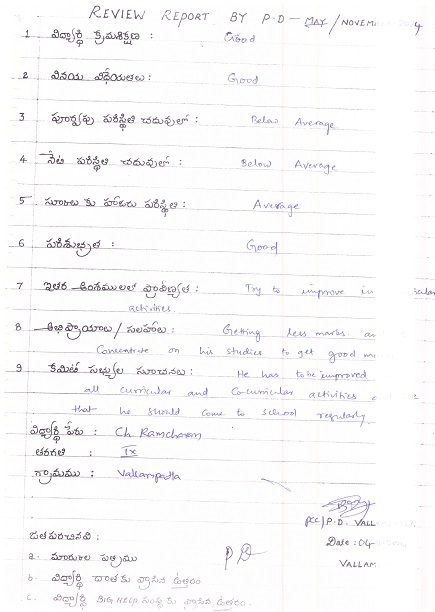 REVIEW REPORT BY P.D – MAY/NOVEM
1 విద్యార్థి క్రమశిక్షణ : Good
2 వినయ విధేయతలు : Good
3 పూర్వపు పరిస్థితి చదువులో : Below Average
4 నేటి పరిస్థితి చదువులో : Below Average
5 స్కూలు కు హాజరు పరిస్థితి : Average
6 పరిశుభ్రత : Good
7 ఇతర అంశములలో ప్రావీణ్యత : Try to improve in
activities.
8 అభిప్రాయాలు / సలహాలు : Getting less marks.
Concentrate on his studies to get good
9 కమిటీ సభ్యుల సూచనలు : He has to be improved
all curricular and co-curricular activities
that he should come to school regularly.
విద్యార్థి పేరు : Ch Ramcharan
తరగతి : IX
గ్రామము : Vallampatla
PCC/P.D. VALL
జతపరచినవి : Date : 04
a. మార్కుల పత్రము PD VALLAM
b. విద్యార్థి దాతకు వ్రాసిన ఉత్తరం
c. విద్యార్థి BIG HELP సంస్థ కు వ్రాసిన ఉత్తరం.